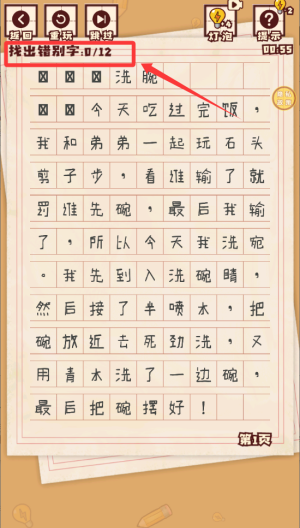 返回 重玩 跳过 灯泡 +4 提示
找出错别字:0/12 00:55
洗腕
今天吃过完饭，
我和弟弟一起玩石头
剪子步，看维输了就
罚维先碗，最后我输
了，所以今天我洗宛
。我先到入洗碗晴，
然后接了半喷水，把
碗放近去死劲洗，又
用青水洗了一边碗，
最后把碗摆好！
第1页